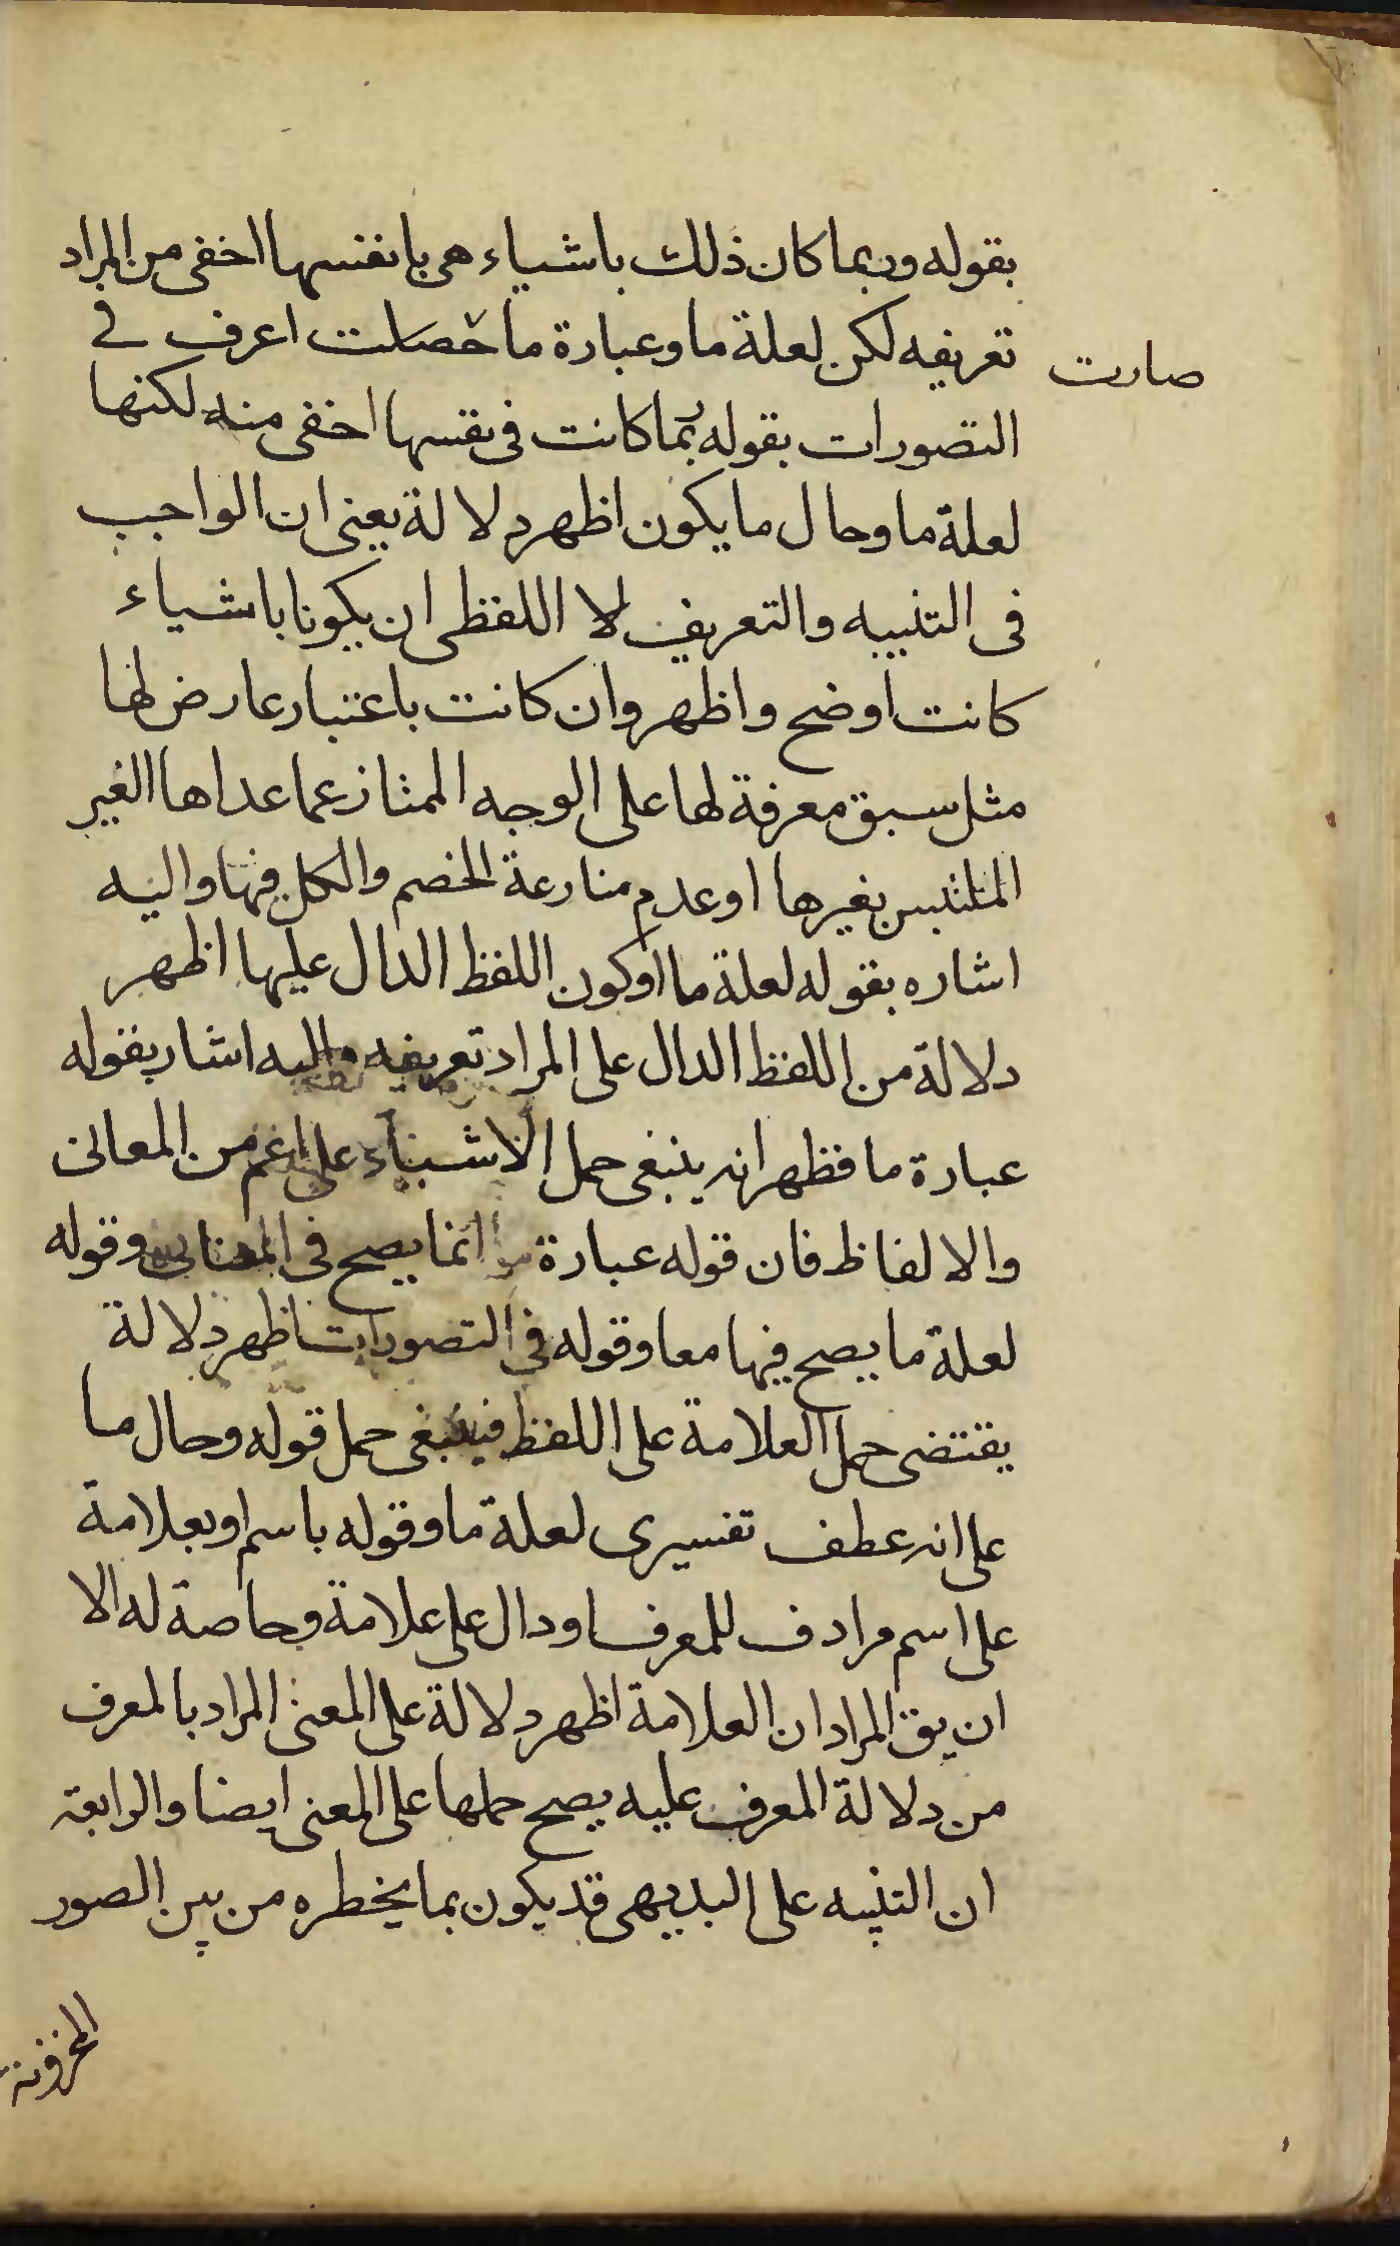 بقوله وربما كان ذلك باشياء هى بانفسها اخفى من المراد
تعريفه لكن لعلة ما وعبارة ما حصلت اعرف في
صارت
التصورات بقوله ربما كانت فى نفسها اخفى منه لكنها
لعلة ما وحال ما يكون اظهر دلالة يعنى ان الواجب
فى التنبيه والتعريف لا اللفظى ان يكونا باشياء
كانت اوضح واظهر وان كانت باعتبار عارض لها
مثل سبق معرفة لها على الوجه الممتاز عما عداها الغير
الملتبس بغيرها او عدم منازعة الخصم والكل فيها واليه
اشاره بقوله لعلة ما او كون اللفظ الدال عليها اظهر
دلالة من اللفظ الدال على المراد تعريفه واليه اشار بقوله
عبارة ما فظهر انه ينبغى حمل الاشياء على اعم من المعانى
والالفاظ فان قوله عبارة ما انما يصح فى المعانى وقوله
لعلة ما يصح فيها معا وقوله فى التصورات اظهر دلالة
يقتضى حمل العلامة على اللفظ فينبغى حمل قوله وحال ما
على انه عطف تفسيرى لعلة ما وقوله باسم او بعلامة
على اسم مرادف للمعرف او دال على علامة وخاصة له الا
ان يق المراد ان العلامة اظهر دلالة على المعنى المراد بالمعرف
من دلالة المعرف عليه يصح حملها على المعنى ايضا والرابعة
ان التنبيه على البديهى قد يكون بما يخطره من بين الصور
المخزونة